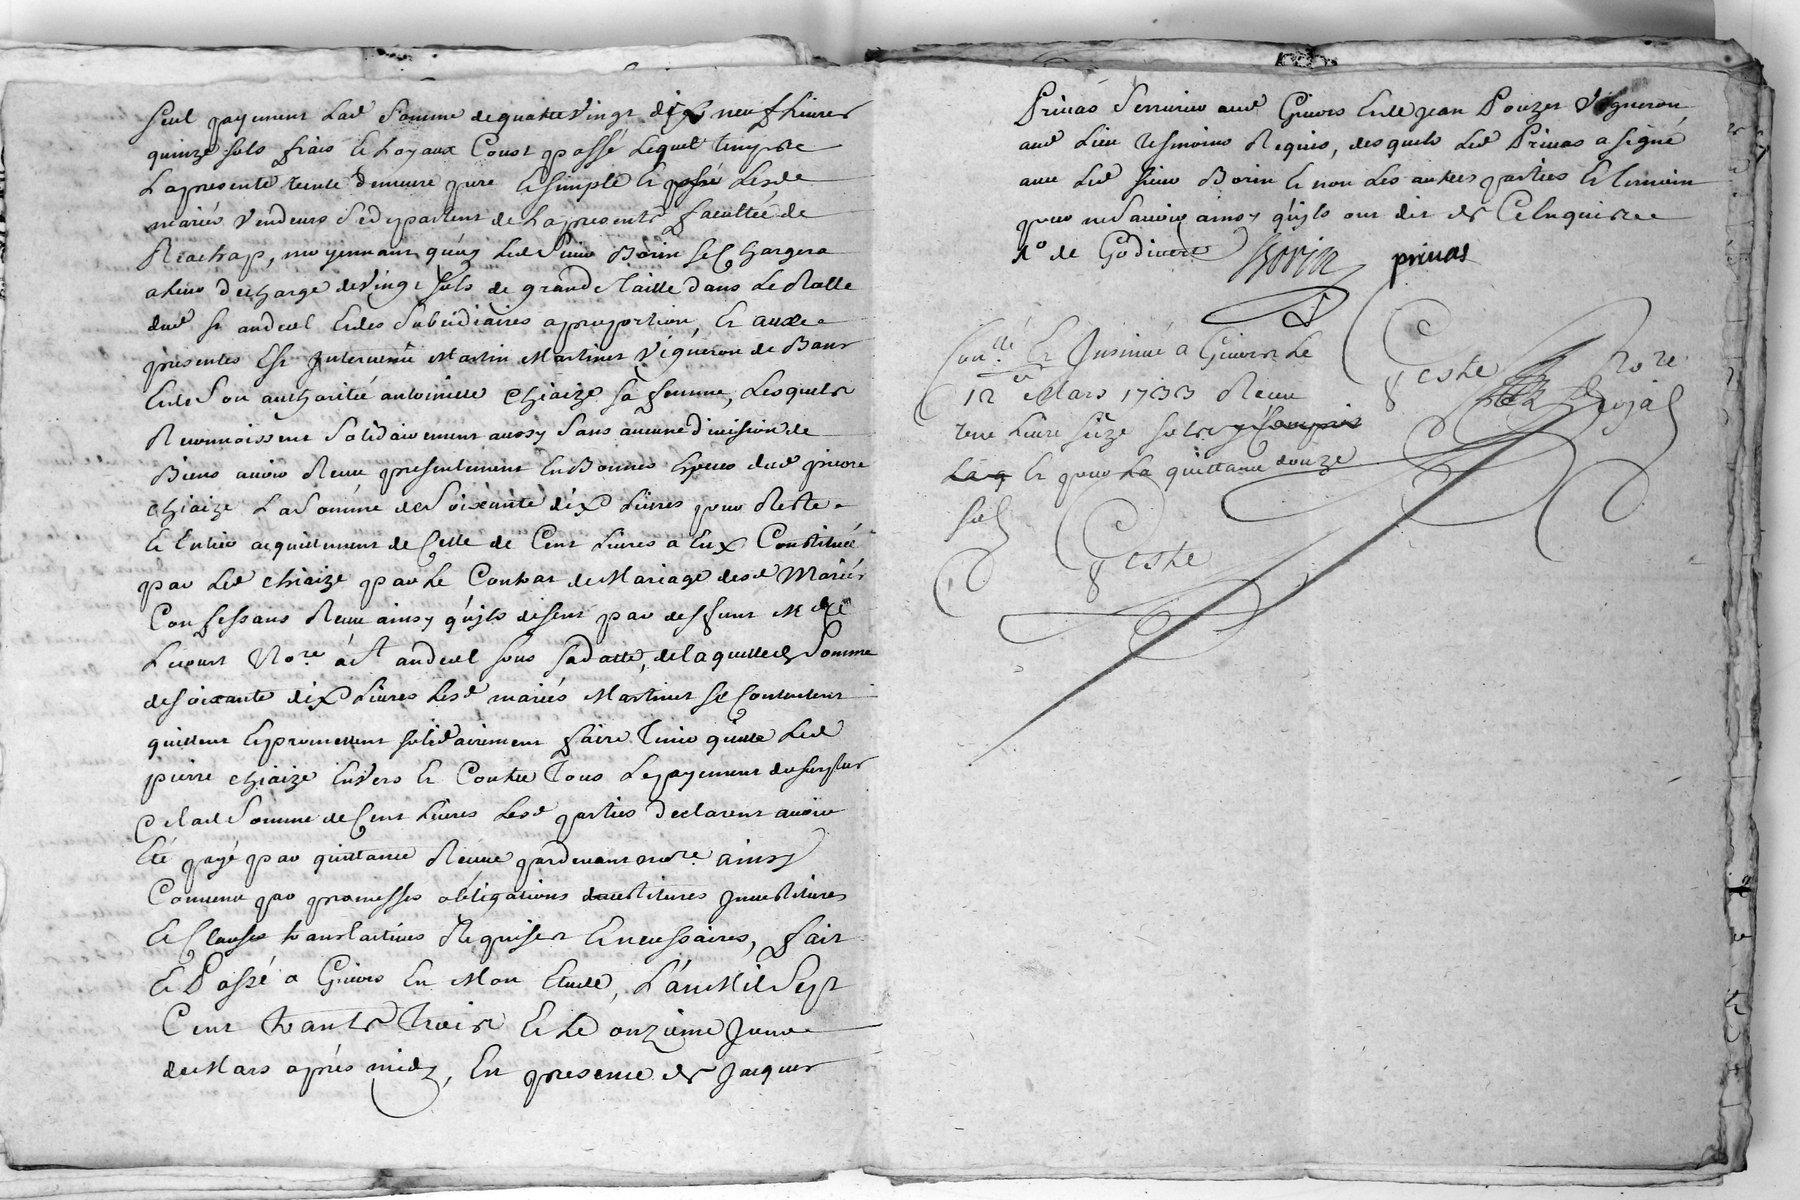 seul payement lad somme de quatrevingt dix neuf livres
quinze sols frais et loyaux Coust passé lequel temps
la presente vente demeure pure et simple et lesd
mariés vendeurs de la presente facultée de
Reachap, moyennant quoy led sieur Borin se Chargera
a leur decharge de vingt sols de grand Taille dans le Rolle
dud st andeol et des subsidiaires a proportion, et aux
presentes Est Intervenu Martin Martinet Vigneron de
et de son authorité antoinette chiaize sa femme, lesquels
Reconnoissent solidairement aussy sans aucune division de
Biens avoir Receu presentement En Bonnes Especes dud pierre
chiaize la somme de soixante dix livres pour Reste
et Entier acquittement de Celle de Cent livres a Eux Constituée
par led chiaize par le Contrat de Mariage desd Mariés
Confessans Receu ainsy quils disent par deffunt Me
Nore a st andeol sous sa datte, de laquelle somme
de soixante dix livres lesd mariés Martinet se Contentent
quittent et promettent solidairement faire tenir quitte led
pierre chiaize Envers et Contre Tous le payement du surplus
de lad somme de Cent livres lesd parties declarent avoir
Eté payé par quittance Receue pardevant nore ainsy
Convenu par promesses obligations investitures
et Clauses translatives Requises et necessaires, fait
et Passé a Givors En Mon Etude, L'an Mil Sept
Cent trante trois et le onzieme Jour
de Mars aprés midy, En presence de Jacques
Privas Serrurier aud Givors et de Jean Pouzet Vigneron
aud lieu tesmoins Requis, desquels led Privas a signé
avec led sieur Borin et non les autres parties et temoin
pour ne scavoir ainsy quils ont dit de Ce Enquis
Borin privas
Conllé et Insinué a Givors le
12e Mars 1733 Receu
livre seize sols y Compris
et pour la quittance douze
sols
Geste Nore Royal
Geste